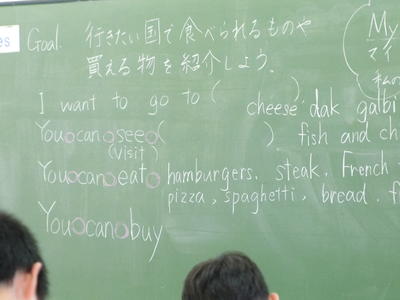 es
Goal. 行きたい国で食べられるものや
買える物を紹介しよう.
My
マイ
私の
I want to go to ( ) cheese dak galbi
You can see ( ) fish and ch
(visit)
You can eat hamburgers. steak. French
pizza, spaghetti, bread. f
You can buy